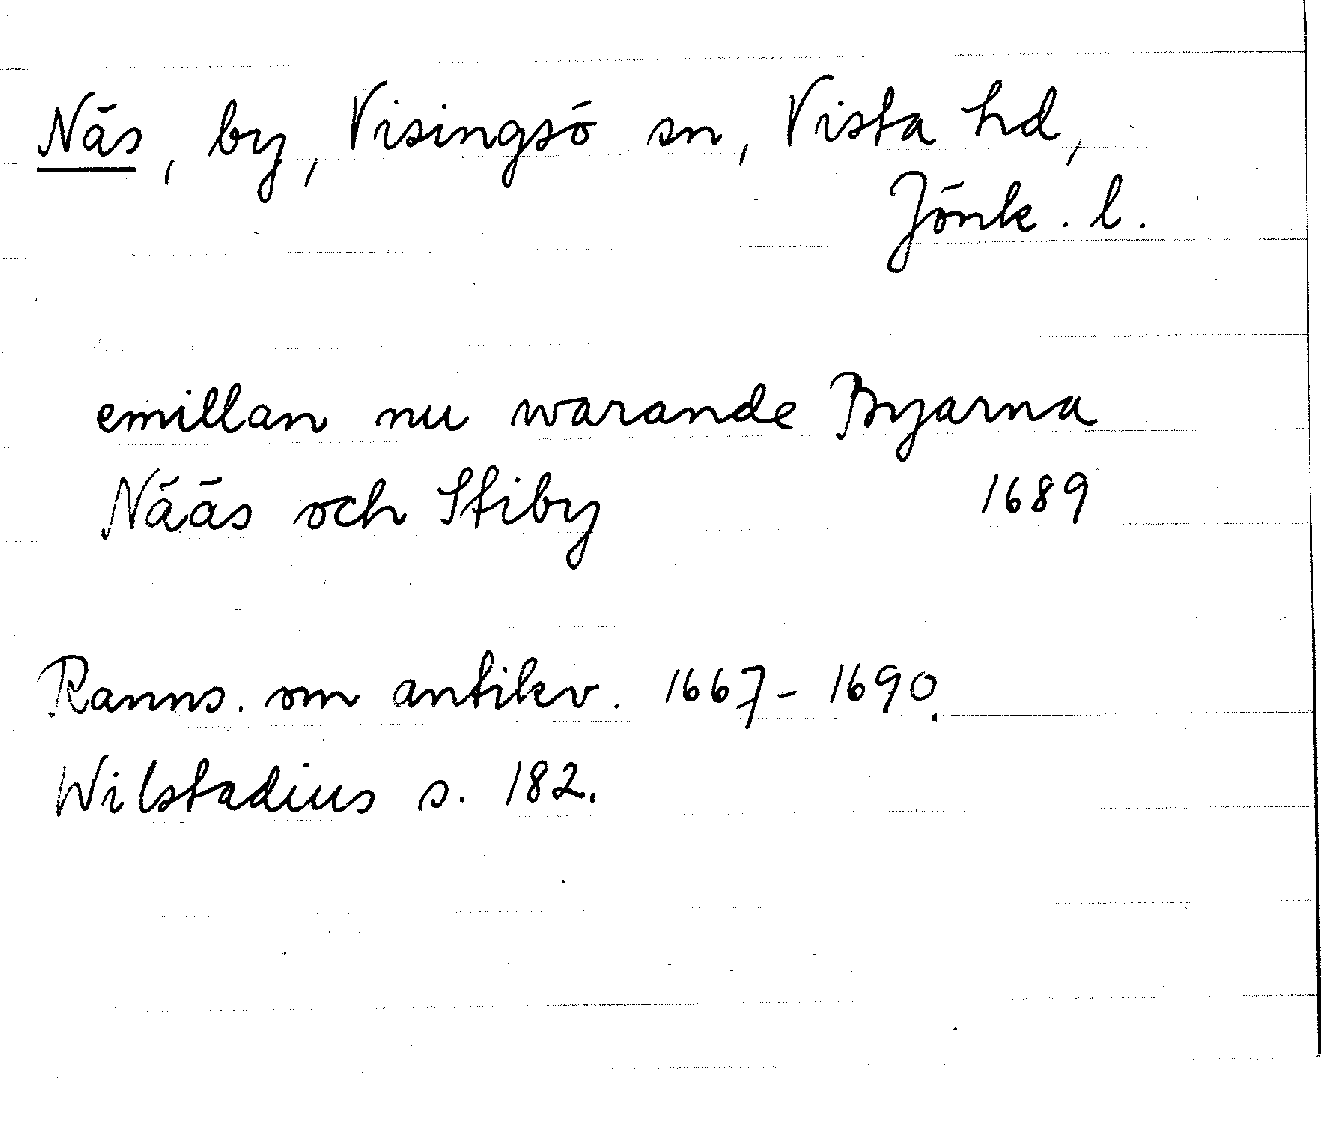 Näs, by, Visingsö sn, Vista hd,
Jönk. l.
emillan nu warande Byarna
Nääs och Stiby 1689
Ranns. om antikv. 1667-1690.
Wilstadius s. 182.